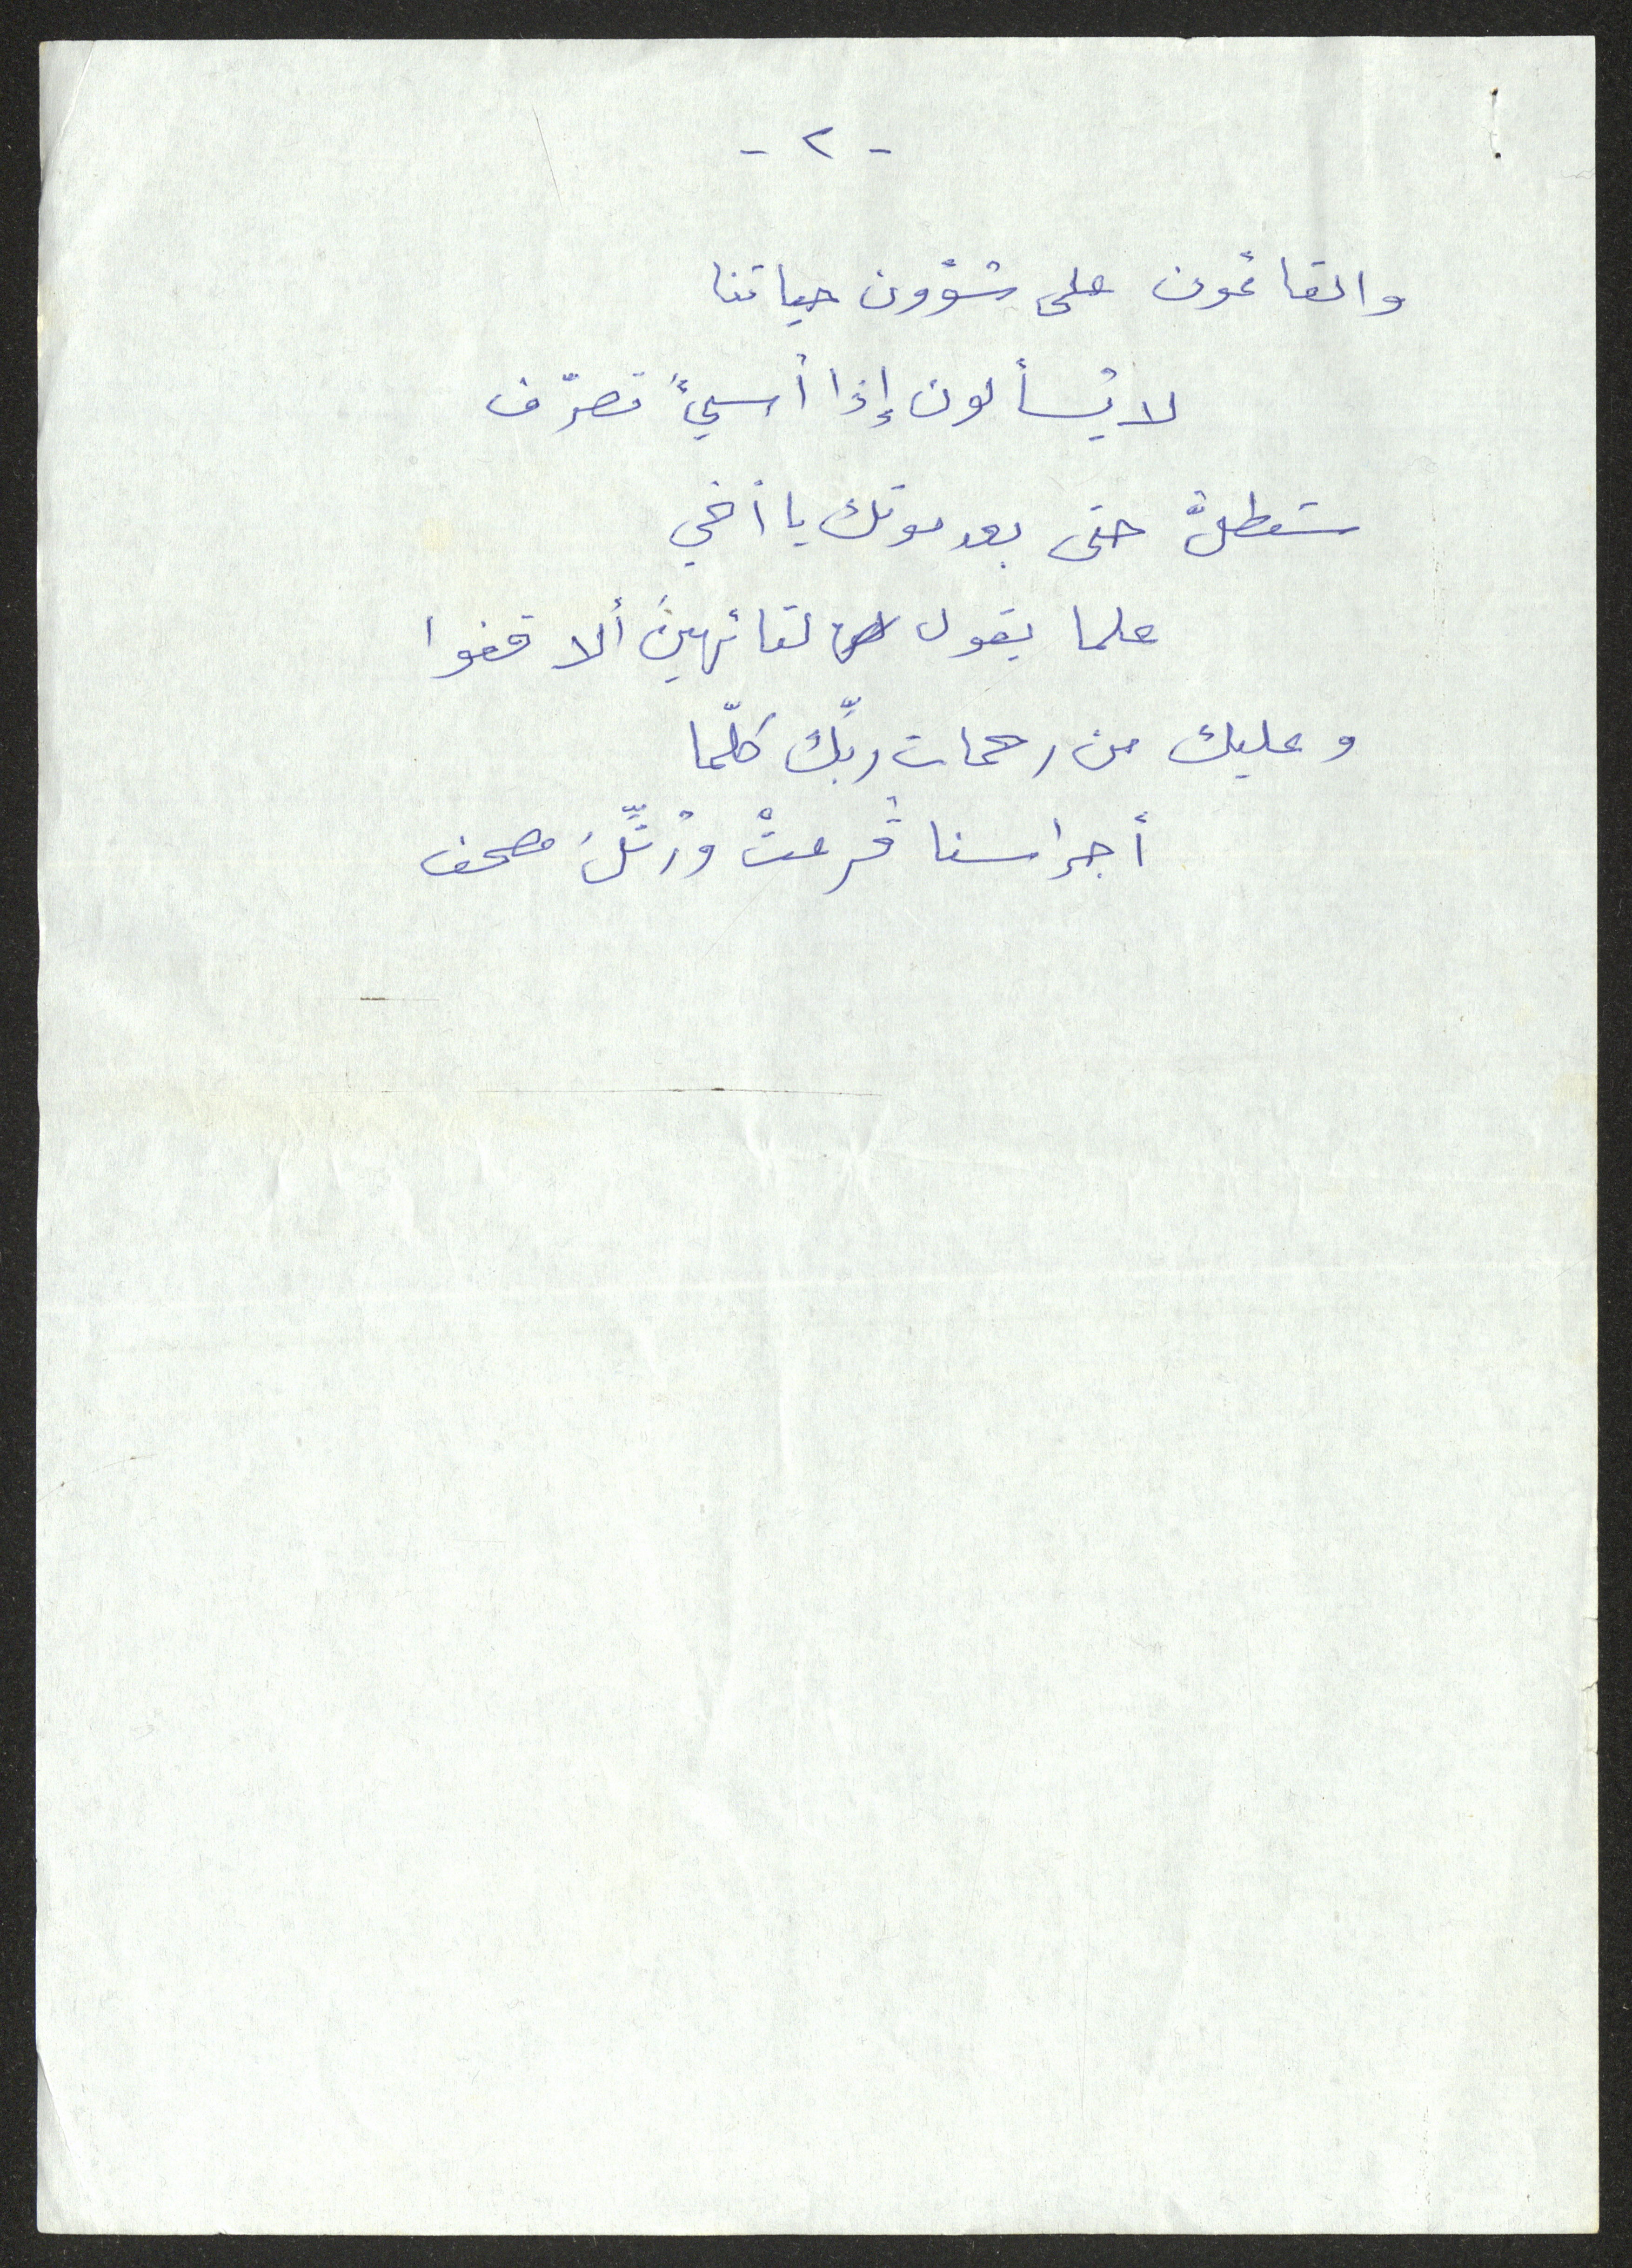 - ٢ -
والقائمون على شؤون حياتنا
لا يُسألون إذا أُسيءَ تصرّف
ستطلُّ حتى بعد موتك يا أخي
علما يقول لتائهينَ ألا قفوا
وعليك من رحمات ربِّك كلّما
أجراسنا قُرعتْ ورُتِّلَ مصحف